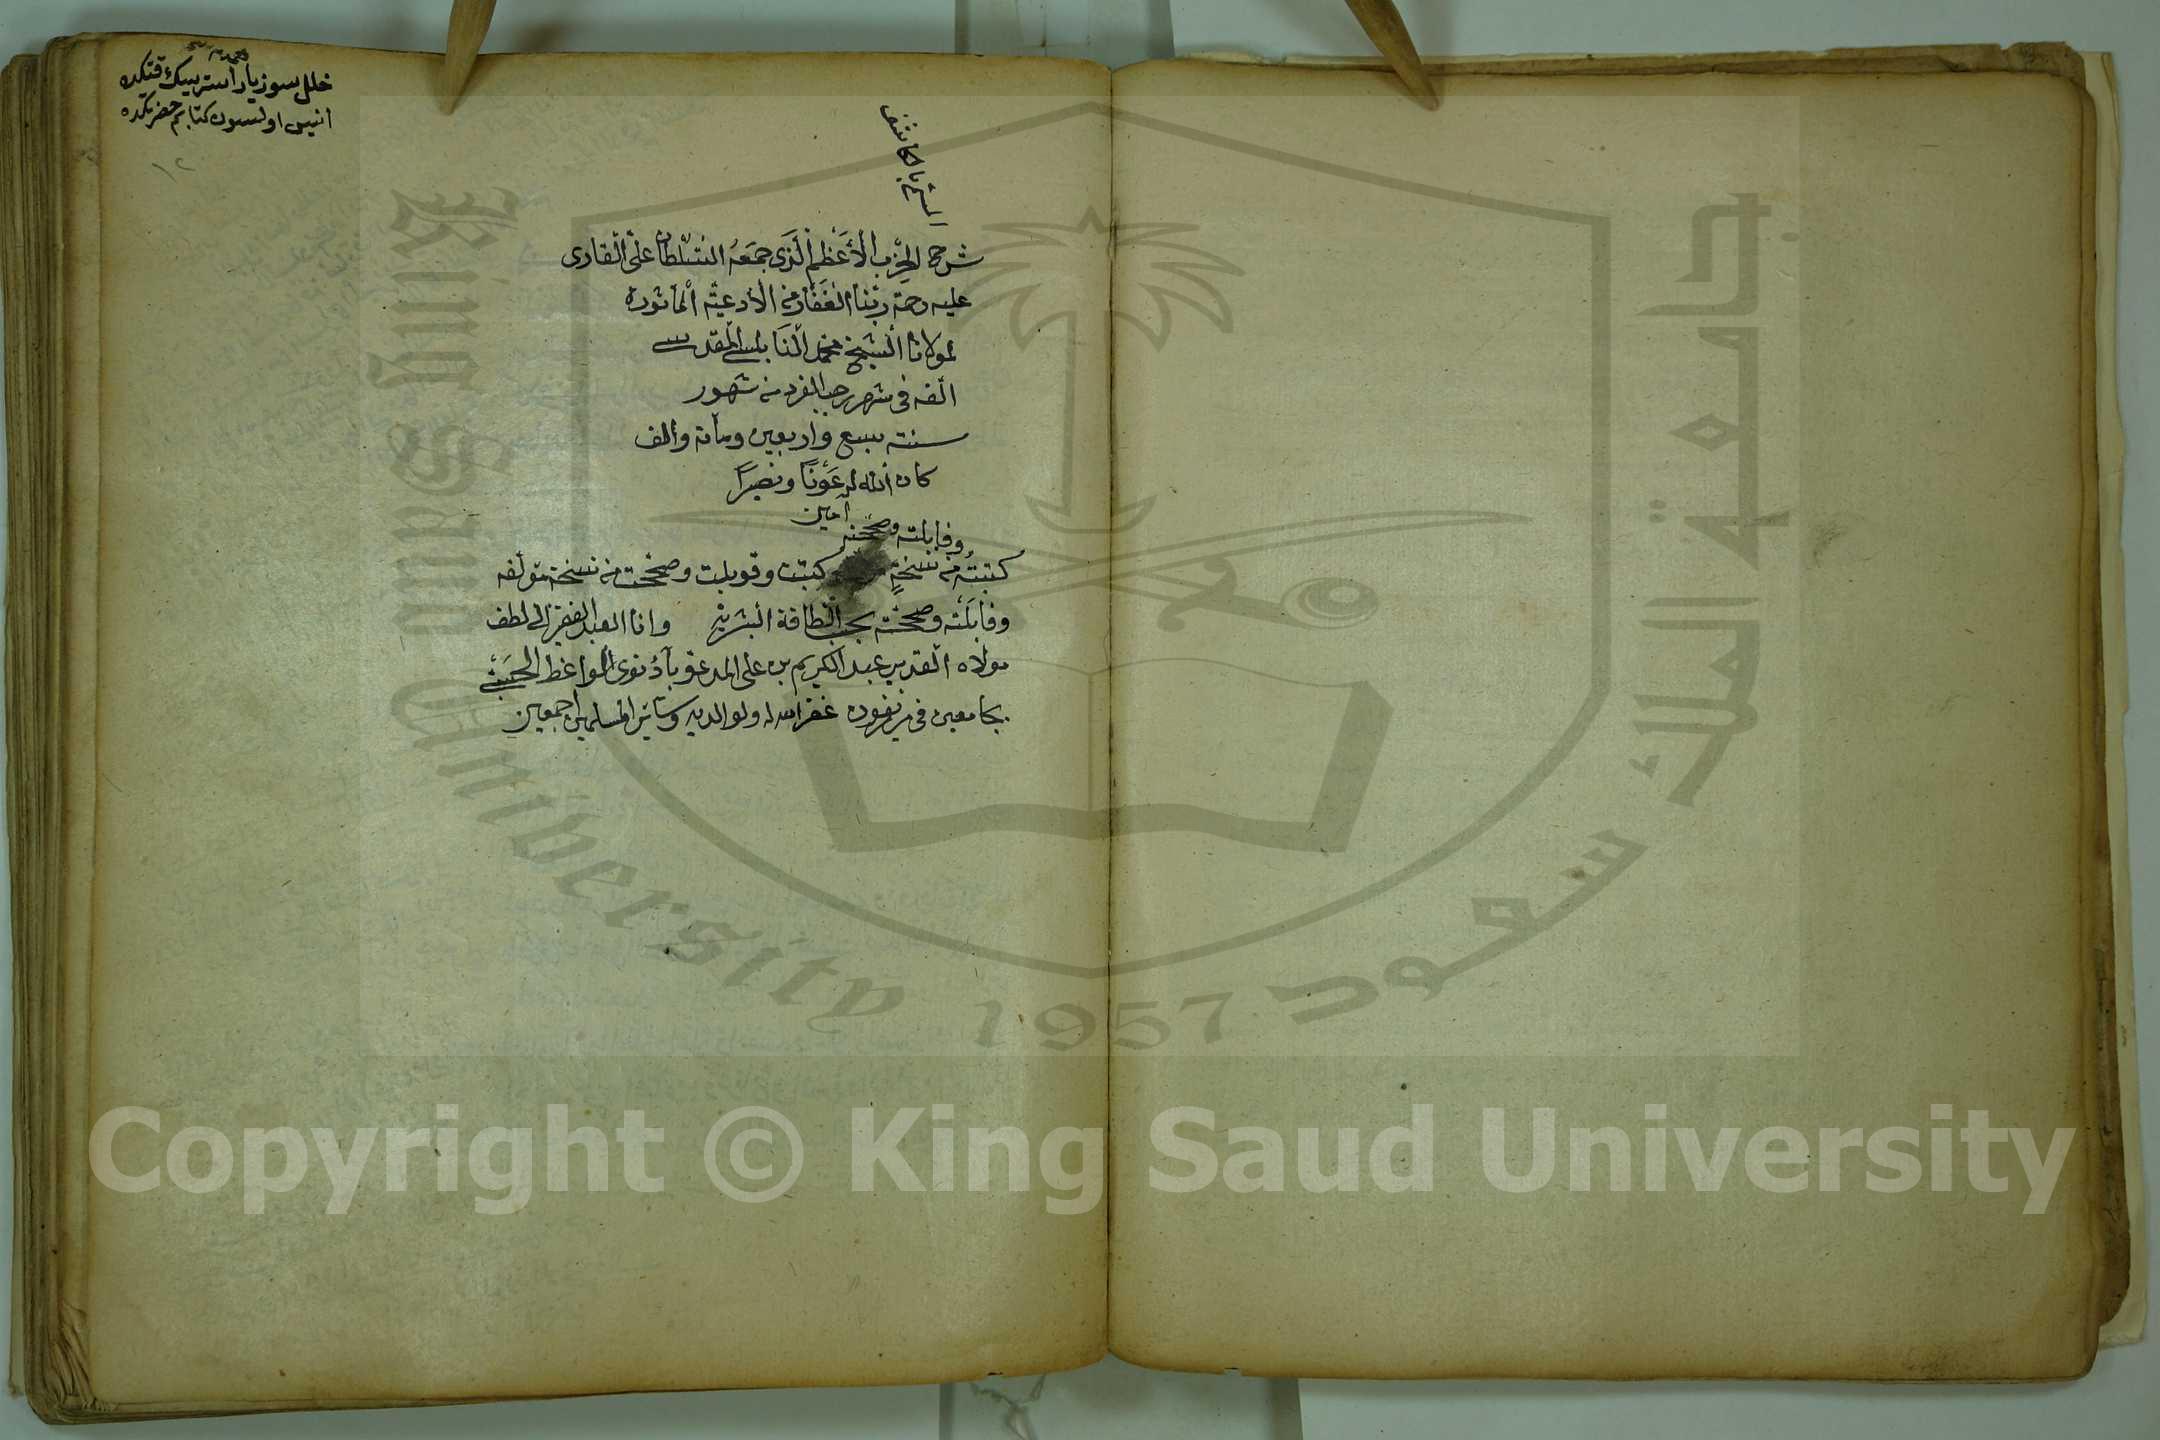 خلل سوز يار استرسك قتكده
انيس اولسون كتابم حضرتكده
١٢
شرح الحِزْب الْأَعْظَم الَّذى جَمَعَهُ السُّلْطان عَلىّ الْقارى
عليه رحمة ربّنا الغَفّار من الْأدعيّة الْمأثورة
لمولانا الْشَيخ محمّد الْنَابلسى المْقدسى
الّفه فى شهر رجب الفرد من شهور
سنة سبع واربعين ومأة والف
كان الله له عَوْنًا ونصيرًا
آمين
وقابلته وصحّحته
كتبتُه من نسخةٍ كتبت وقوبلت وصحّحت من نسخة مؤلفه
وقابَلْتُه وصحّحته بحسب الْطاقة الْبشريّة وانا العبد الفقير الى لطف
مولاه الْقدير عبد الكريم بن على المدعوّ
بجامعين فى مرزيفون غفر الله له ولوالديه وسائر المسلمين اجمعين
King Saud University 1957
جامعة الملك سعود
Copyright © King Saud University